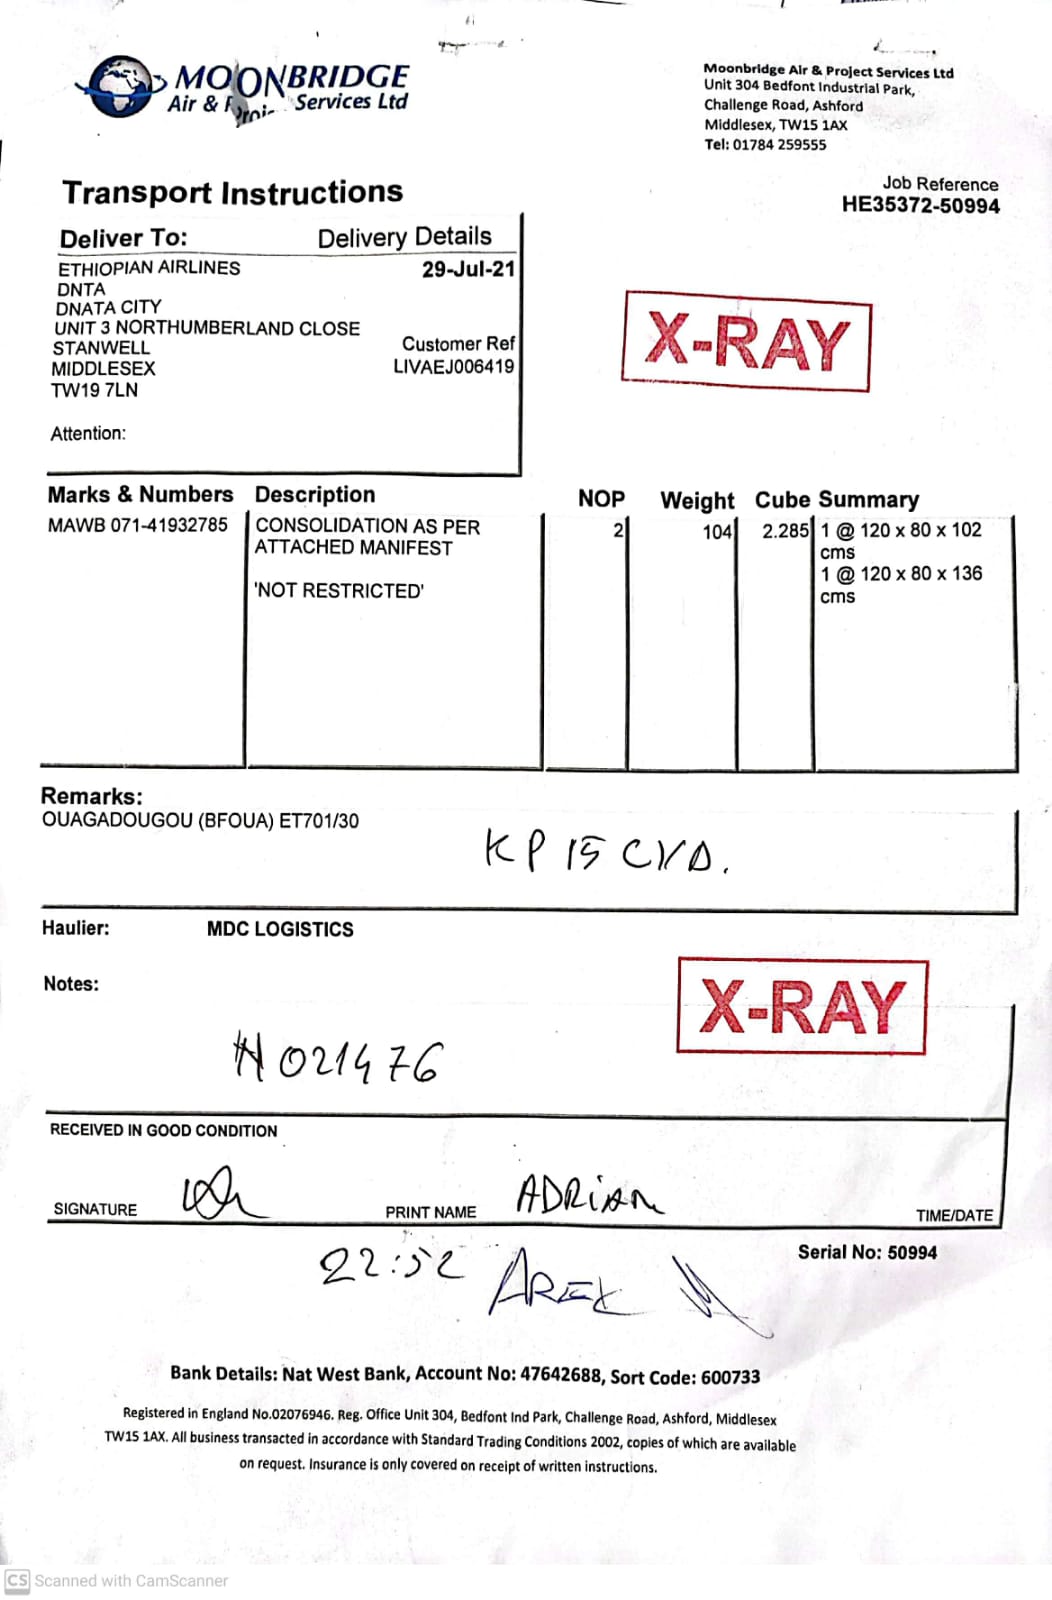 MOONBRIDGE
Air & Proj Services Ltd
Moonbridge Air & Project Services Ltd
Unit 304 Bedfont Industrial Park,
Challenge Road, Ashford
Middlesex, TW15 1AX
Tel: 01784 259555
Job Reference
HE35372-50994
Transport Instructions
Deliver To: Delivery Details
ETHIOPIAN AIRLINES 29-Jul-21
DNTA
DNATA CITY
UNIT 3 NORTHUMBERLAND CLOSE
STANWELL Customer Ref
MIDDLESEX LIVAEJ006419
TW19 7LN
Attention:
X-RAY
Marks & Numbers Description NOP Weight Cube Summary
MAWB 071-41932785 CONSOLIDATION AS PER 2 104 2.285 1 @ 120 x 80 x 102
ATTACHED MANIFEST cms
'NOT RESTRICTED' 1 @ 120 x 80 x 136
cms
Remarks:
OUAGADOUGOU (BFOUA) ET701/30
KP 15 CVD.
Haulier: MDC LOGISTICS
Notes:
X-RAY
021476
RECEIVED IN GOOD CONDITION
SIGNATURE PRINT NAME ADRIAN TIME/DATE
22:52 AREK
Serial No: 50994
Bank Details: Nat West Bank, Account No: 47642688, Sort Code: 600733
Registered in England No.02076946. Reg. Office Unit 304, Bedfont Ind Park, Challenge Road, Ashford, Middlesex
TW15 1AX. All business transacted in accordance with Standard Trading Conditions 2002, copies of which are available
on request. Insurance is only covered on receipt of written instructions.
CS Scanned with CamScanner